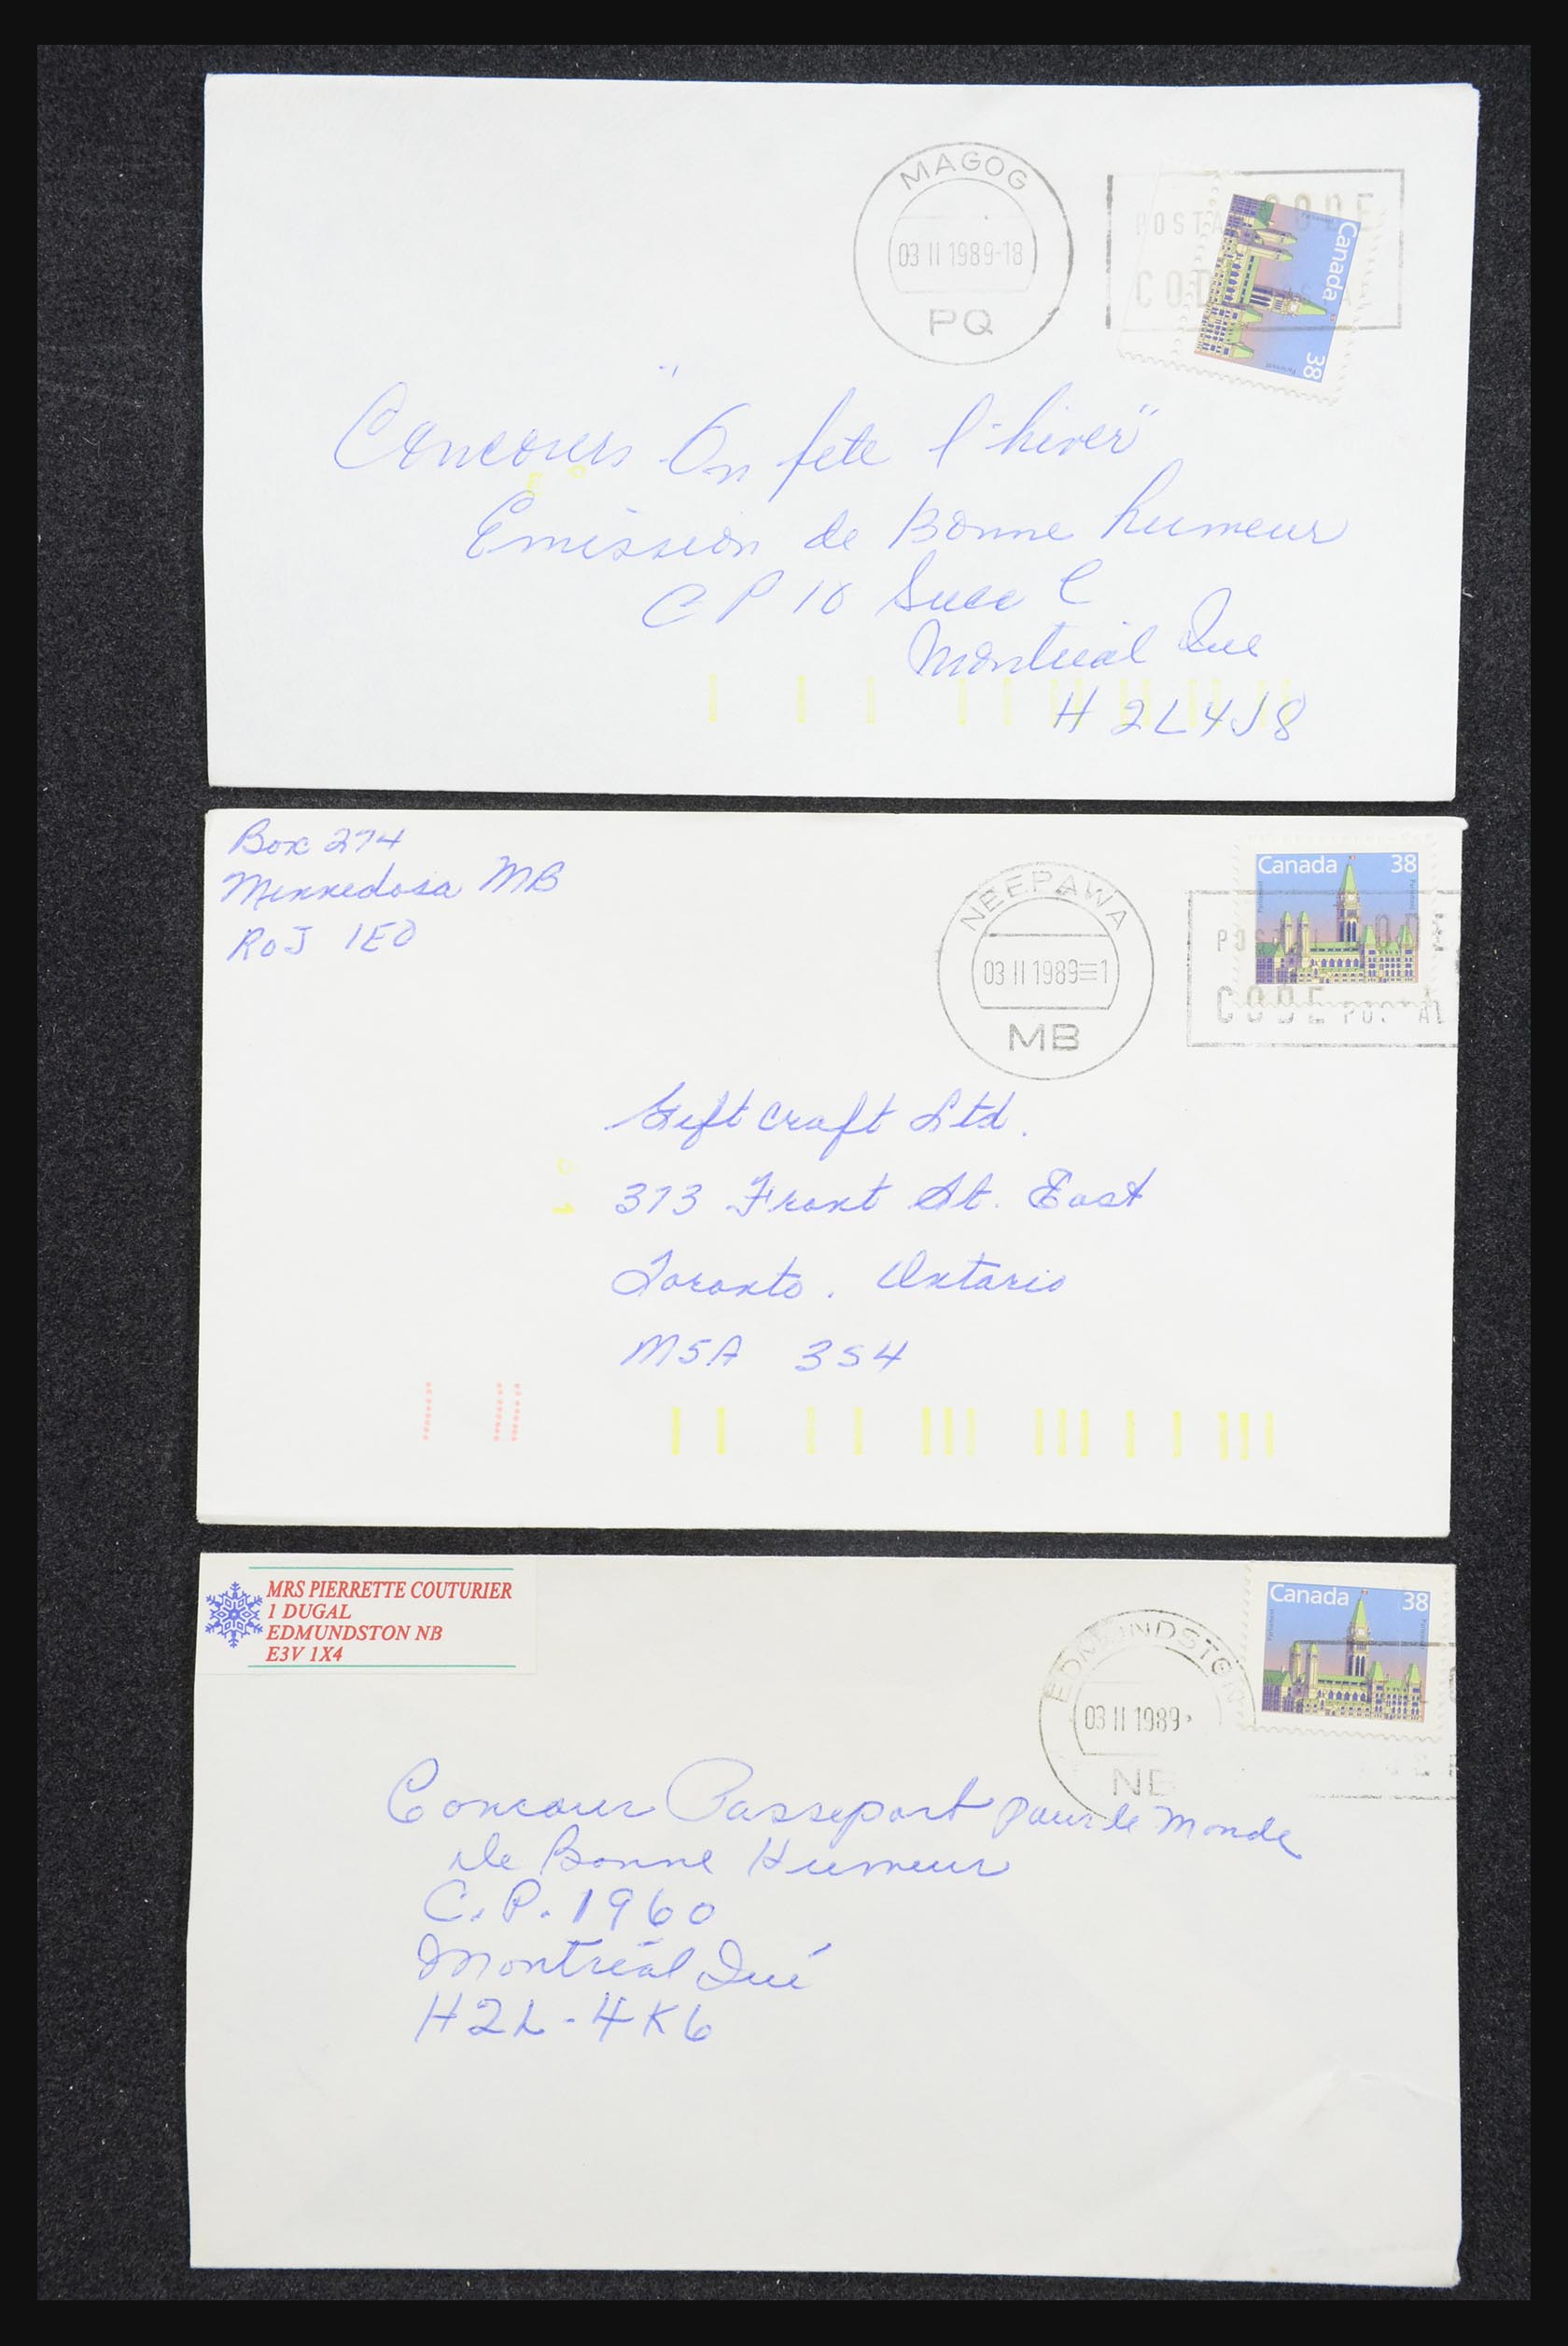 MAGOG
03 II 1989-18
PQ
POSTAL CODE
CODE POSTAL
Canada 38
Concours "On fete l'hiver"
Emission de Bonne humeur
C P 10 Succ C
Montreal Que
H2L4J8
Box 274
Minnedosa MB
R0J 1E0
NEEPAWA
03 II 1989 1
MB
Canada 38
POSTAL CODE
CODE POSTAL
Gift craft Ltd.
373 Front St. East
Toronto. Ontario
M5A 3S4
MRS PIERRETTE COUTURIER
1 DUGAL
EDMUNDSTON NB
E3V 1X4
EDMUNDSTON
03 II 1989
NB
Canada 38
Concour Passeport pour le monde
de Bonne Humeur
C.P. 1960
Montréal Qué
H2L-4K6